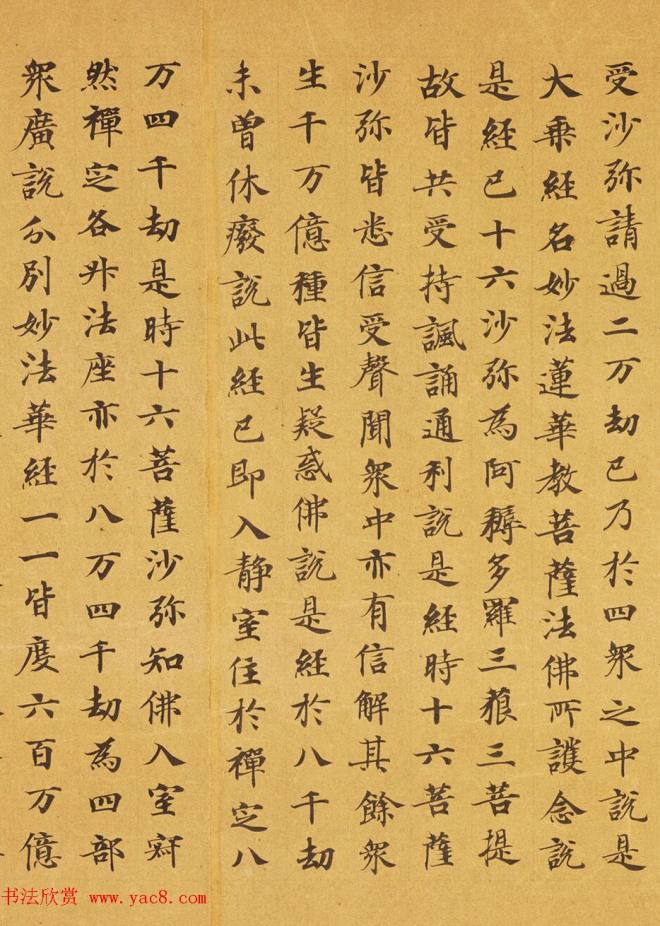 受沙弥請過二万劫已乃於四衆之中說是
大乗經名妙法蓮華教菩薩法佛所護念說
是經已十六沙弥為阿耨多羅三藐三菩提
故皆共受持諷誦通利說是經時十六菩薩
沙弥皆悉信受聲聞衆中亦有信解其餘衆
生千万億種皆生疑惑佛說是經於八千劫
未曾休癈說此經已即入静室住於禪定八
万四千劫是時十六菩薩沙弥知佛入室寂
然禪定各升法座亦於八万四千劫為四部
衆廣說分別妙法華經一一皆度六百万億
书法欣赏 www.yac8.com